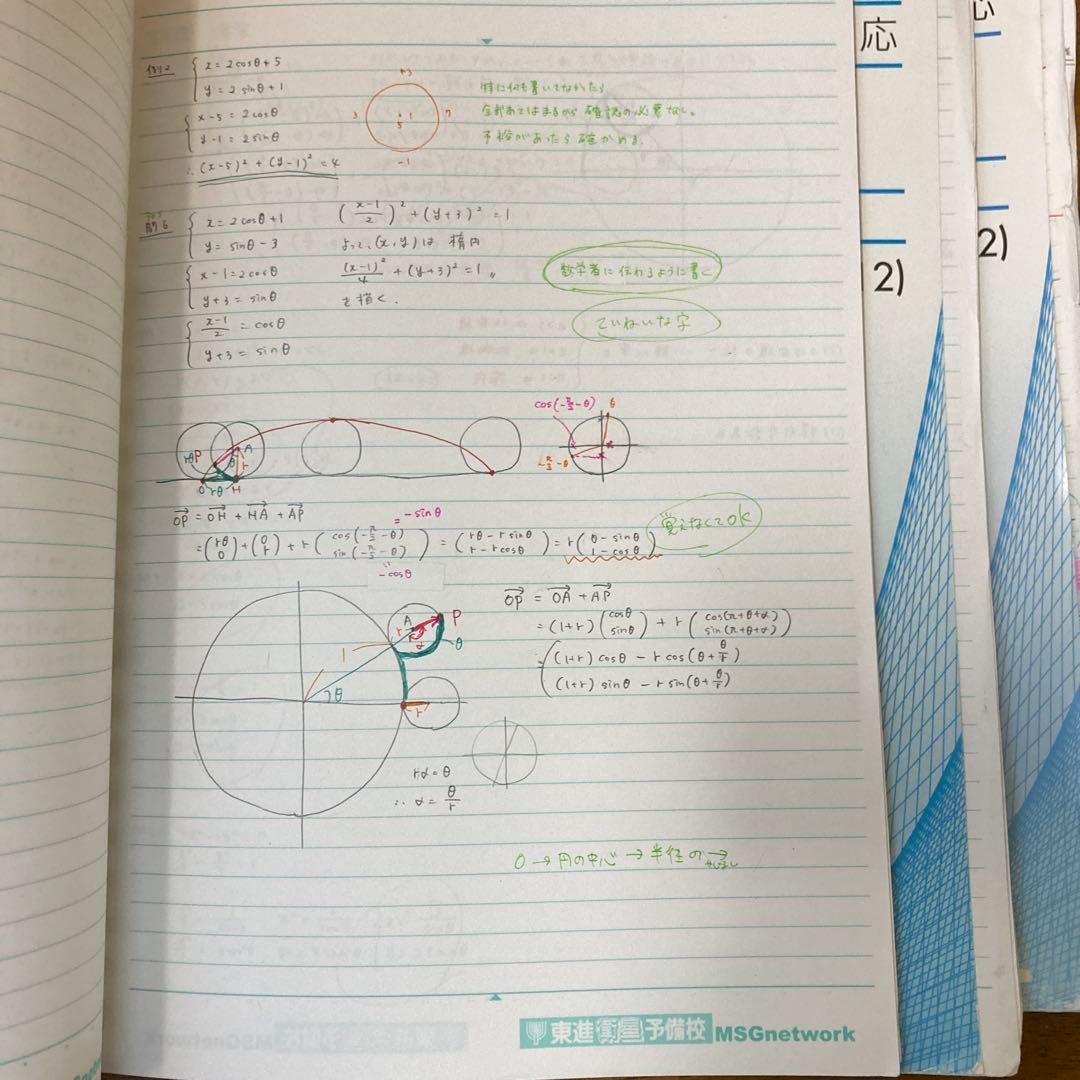 例2
x = 2cosθ + 5
y = 2 sinθ + 1
x - 5 = 2cosθ
y - 1 = 2sinθ
∴ (x-5)² + (y-1)² = 4
+3
3
5
1
7
-1
特に何も書いてなかったら
全部あてはまるから 確認の必要なし。
予裕があったら確かめる
6
x = 2cosθ + 1
y = sinθ - 3
x - 1 = 2cosθ
y + 3 = sinθ
x-1/2 = cosθ
y + 3 = sinθ
(x-1/2)² + (y+3)² = 1
よって、(x, y) は 楕円
(x-1)²/4 + (y+3)² = 1 〃
を描く.
数学者に伝わるように書く
ていねいな字
rθ P θ A r
O rθ H
cos(-π/2-θ) θ
-π/2-θ
OP = OH + HA + AP
= (rθ 0) + (0 r) + r (cos(-π/2-θ) sin(-π/2-θ)) = (rθ - r sinθ r - r cosθ) = r (θ - sinθ 1 - cosθ)
= -sinθ
-cosθ
覚えなくてOK
A P
r r α θ
1
θ
r
rα = θ
∴ α = θ/r
OP = OA + AP
= (1+r) (cosθ sinθ) + r (cos(π+θ+α) sin(π+θ+α))
= ((1+r) cosθ - r cos(θ + θ/r)
(1+r) sinθ - r sin(θ + θ/r))
O → 円の中心 → 半径の
東進衛星予備校 MSGnetwork
応
2)
2)